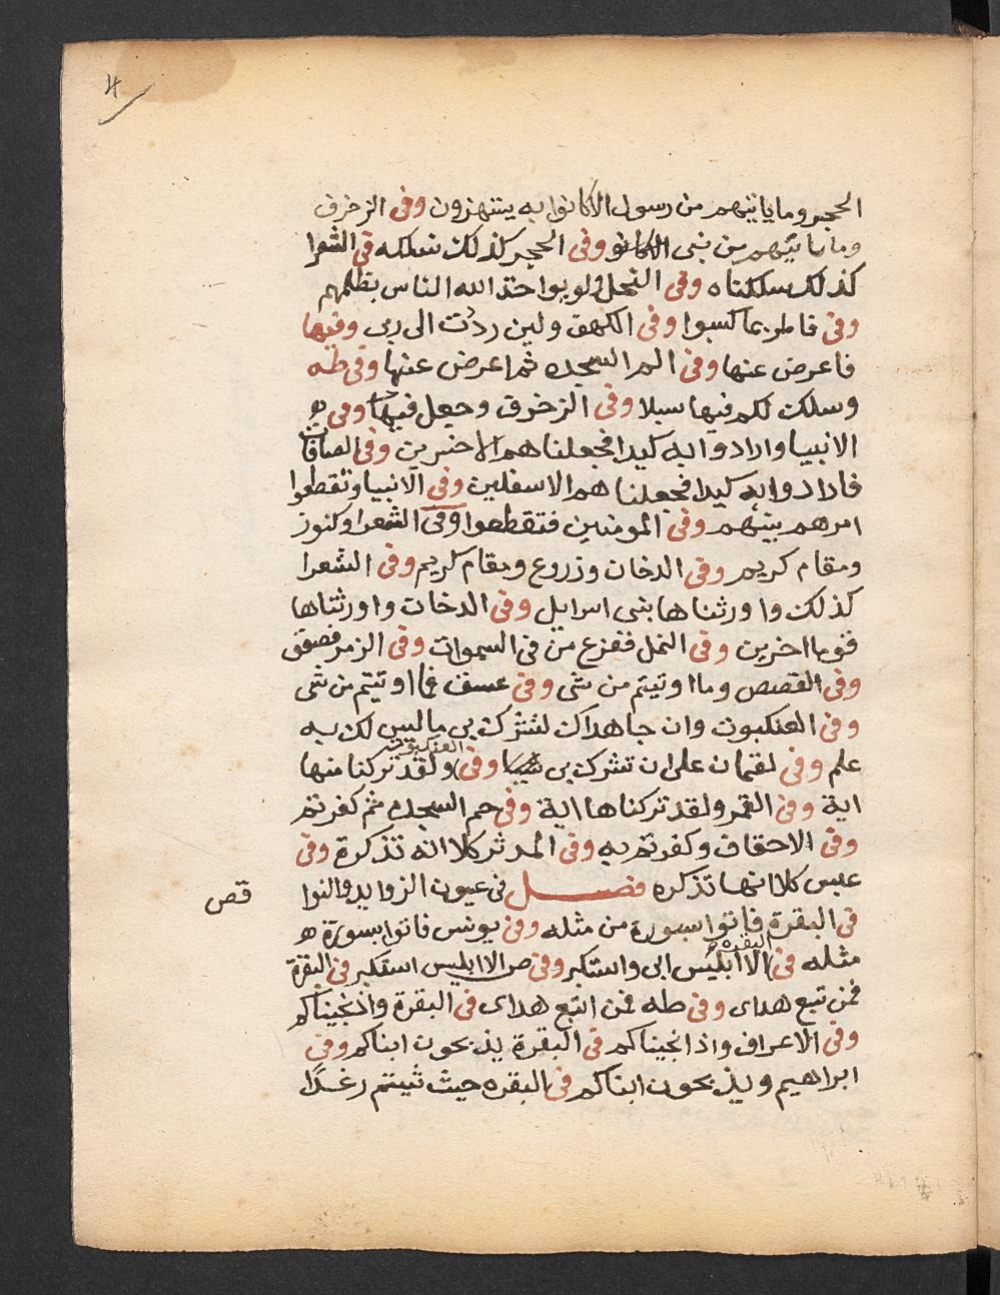 4
الحجر وما ياتيهم من رسول الا كانوا به يستهزون وفى الزخرف
وما ياتيهم من نبى الا كانو وفى الحجر كذلك نسلكه فى الشعرا
كذلك سلكناه وفى النحل ولو يواخذ الله الناس بظلمهم
وفى فاطر بما كسبوا وفى الكهف ولين رددت الى ربى وفيها
فاعرض عنها وفى الم السجده ثم اعرض عنها وفى طه
وسلك لكم فيها سبلا وفى الزخرف وجعل فيها وفى
الانبيا وارادوا به كيدا فجعلناهم الاخسرين وفى الصافات
فارادوا به كيدا فجعلناهم الاسفلين وفى الانبيا وتقطعوا
امرهم بينهم وفى المومنين فتقطعوا وفى الشعرا وكنوز
ومقام كريم وفى الدخان وزروع ومقام كريم وفى الشعرا
كذلك واورثناها بنى اسرايل وفى الدخان واورثناها
قوما اخرين وفى النمل ففزع من فى السموات وفى الزمر فصعق
وفى القصص وما اوتيتم من شى وفى عسق فما اوتيتم من شى
وفى العنكبوت وان جاهداك لتشرك بى ما ليس لك به
علم وفى لقمان على ان تشرك بى وفى العنكبوت ولقد تركنا منها
اية وفى القمر ولقد تركناها اية وفى حم السجده ثم كفرتم
وفى الاحقاف وكفرتم به وفى المدثر كلا انه تذكرة وفى
عبس كلا انها تذكره فصل فى عيون الزوايد والنوا
قص
فى البقرة فاتوا بسورة من مثله وفى يونس فاتوا بسورة
مثله فى البقره الا ابليس ابى واستكبر وفى ص الا ابليس استكبر فى البقرة
فمن تبع هداى وفى طه فمن اتبع هداى فى البقرة واذ نجيناكم
وفى الاعراف واذ انجيناكم فى البقرة يذبحون ابناكم وفى
ابراهيم ويذبحون ابناكم فى البقره حيث شيتم رغدًا